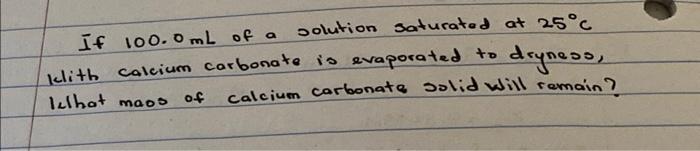 If 100.0 mL of a solution saturated at 25°C
With calcium carbonate is evaporated to dryness,
What mass of calcium carbonate solid will remain?